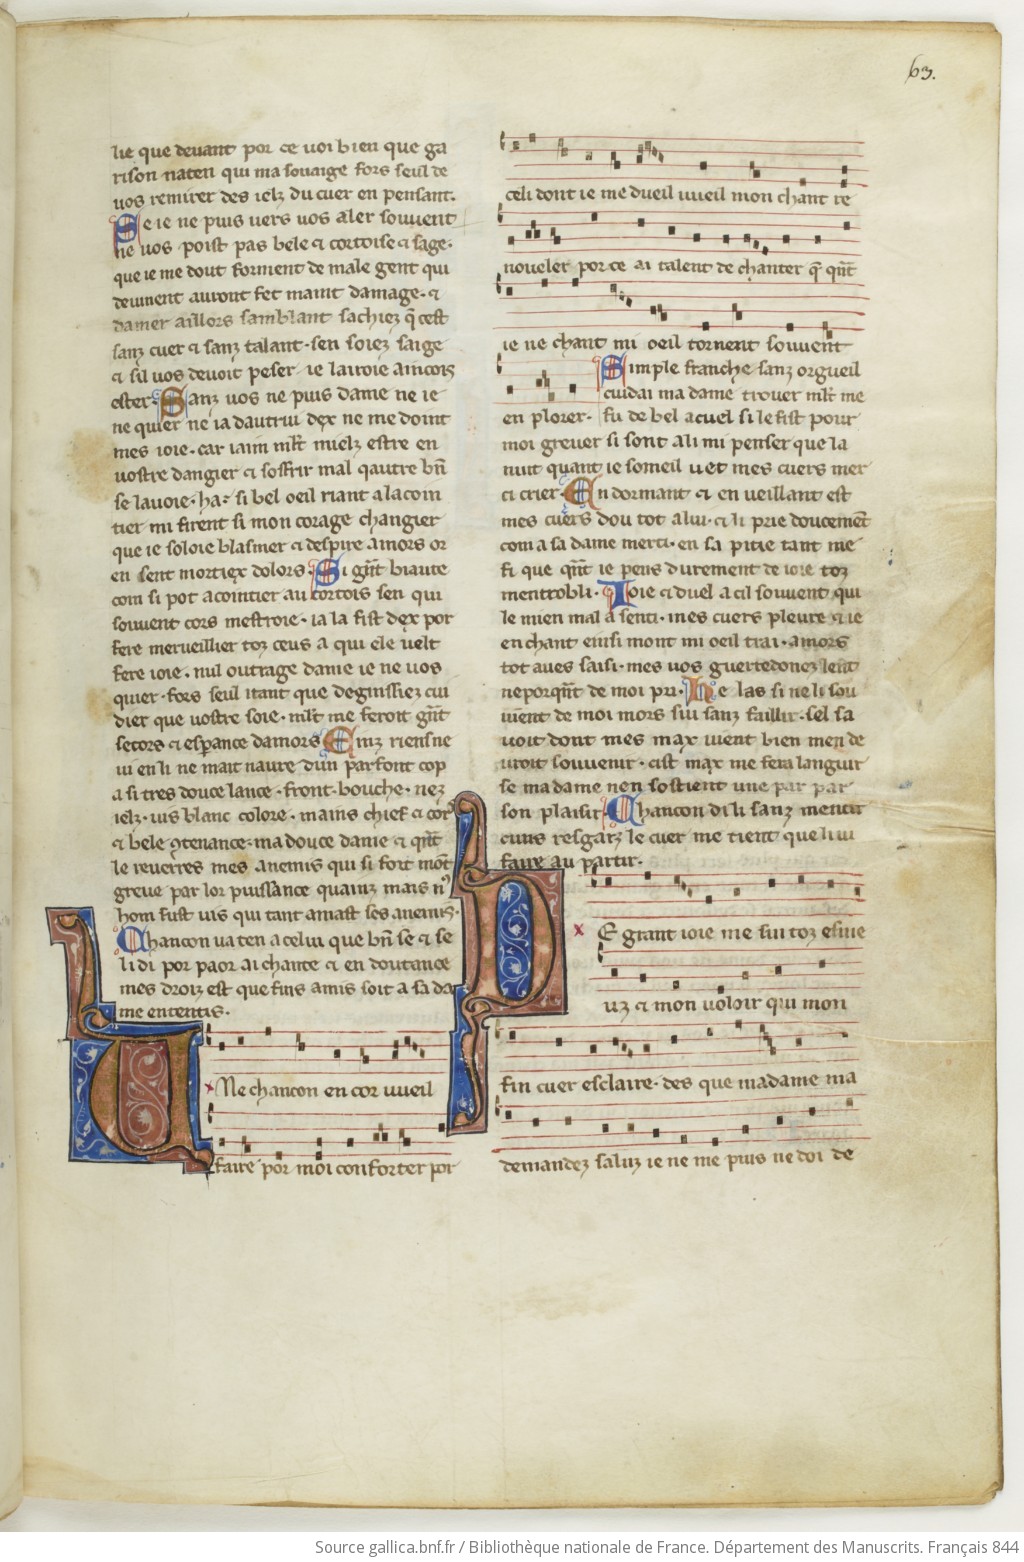 63.
lie que deuant por ce uoi bien que ga
rison naten qui ma souaige fors seul de
uos remirer des ielz du cuer en pensant.
Se ie ne puis uers uos aler souuent
ne uos poist pas bele ⁊ cortoise ⁊ sage.
que ie me dout forment de male gent qui
deuinent auront fet maint damage. ⁊
damer aillors samblant sachiez q̃ cest
sanz cuer ⁊ sanz talant. sen soiez saige
⁊ sil uos deuoit peser ie lairoie aincois
ester. Sanz uos ne puis dame ne ie
ne quier ne ia dautrui dex ne me doint
mes ioie. car iaim mlt̃ mielz estre en
uostre dangier ⁊ soffrir mal qautre bñ
se lauoie. ha: si bel oeil riant a lacoin
tier mi firent si mon corage changier
que ie soloie blasmer ⁊ despire amors or
en sent mortiex dolors. Si gñt biaute
com si pot acointier au cortois sen qui
souuent cors mestroie. ia la fist dex por
fere merueillier toz ceus a qui ele uelt
fere ioie. nul outrage dame ie ne uos
quier. fors seul itant que deginssiez cui
dier que uostre soie. mlt̃ me feroit gñt
secors ⁊ esperance damors Einz riens ne
ui en li ne mait naure dun parfont cop
a si tres douce lance. front. bouche. nez
ielz. uis blanc colore. mains chief ⁊ cors
⁊ bele 9tenance. ma douce dame ⁊ qñt
le reuerres mes anemis qui si font mõt
greue par lor puissance quainz mais n9
hom fust uis qui tant amast ses anemis.
Chancon ua ten a celui que bñ se ⁊ se
li di por paor ai chante ⁊ en doutance
mes droiz est que fins amis soit a sa da
me ententis.
Vne chancon encor uueil
faire por moi conforter por
celi dont ie me dueil uueil mon chant re
nouueler por ce ai talent de chanter q̃ qñt
ie ne chant mi oeil tornent souuent
en plorer. Simple franche sanz orgueil
cuidai ma dame trouer mlt̃ me
fu de bel acuel si le fist pour
moi greuer si sont a li mi penser que la
nuit quant ie someil uet mes cuers mer
ci crier. En dormant ⁊ en ueillant est
mes cuers dou tot a lui. ⁊ li prie doucement
com a sa dame merci. en sa pitie tant me
fi que qñt ie pens durement de ioie toz
mentrobli. Ioie ⁊ duel a cil souuent qui
le mien mal a senti. mes cuers pleure ⁊ ie
en chant einsi mont mi oeil trai. amors
tot aues saisi. mes uos guerredonez lent
neporqñt de moi pri. He las si ne li sou
uient de moi mors sui sanz faillir. sel sa
uoit dont mes max uient bien men de
uroit souuenir. cist max me fera languir
se ma dame nen sostient une par par
son plaisir. Chancon di li sanz mentir
cuns resgarz le cuer me tient que li ui
faire au partir.
De grant ioie me sui toz esmeuz
⁊ mon uoloir qui mon
fin cuer esclaire. des que madame ma
demandez saluz ie ne me puis ne doi de
Source gallica.bnf.fr / Bibliothèque nationale de France. Département des Manuscrits. Français 844